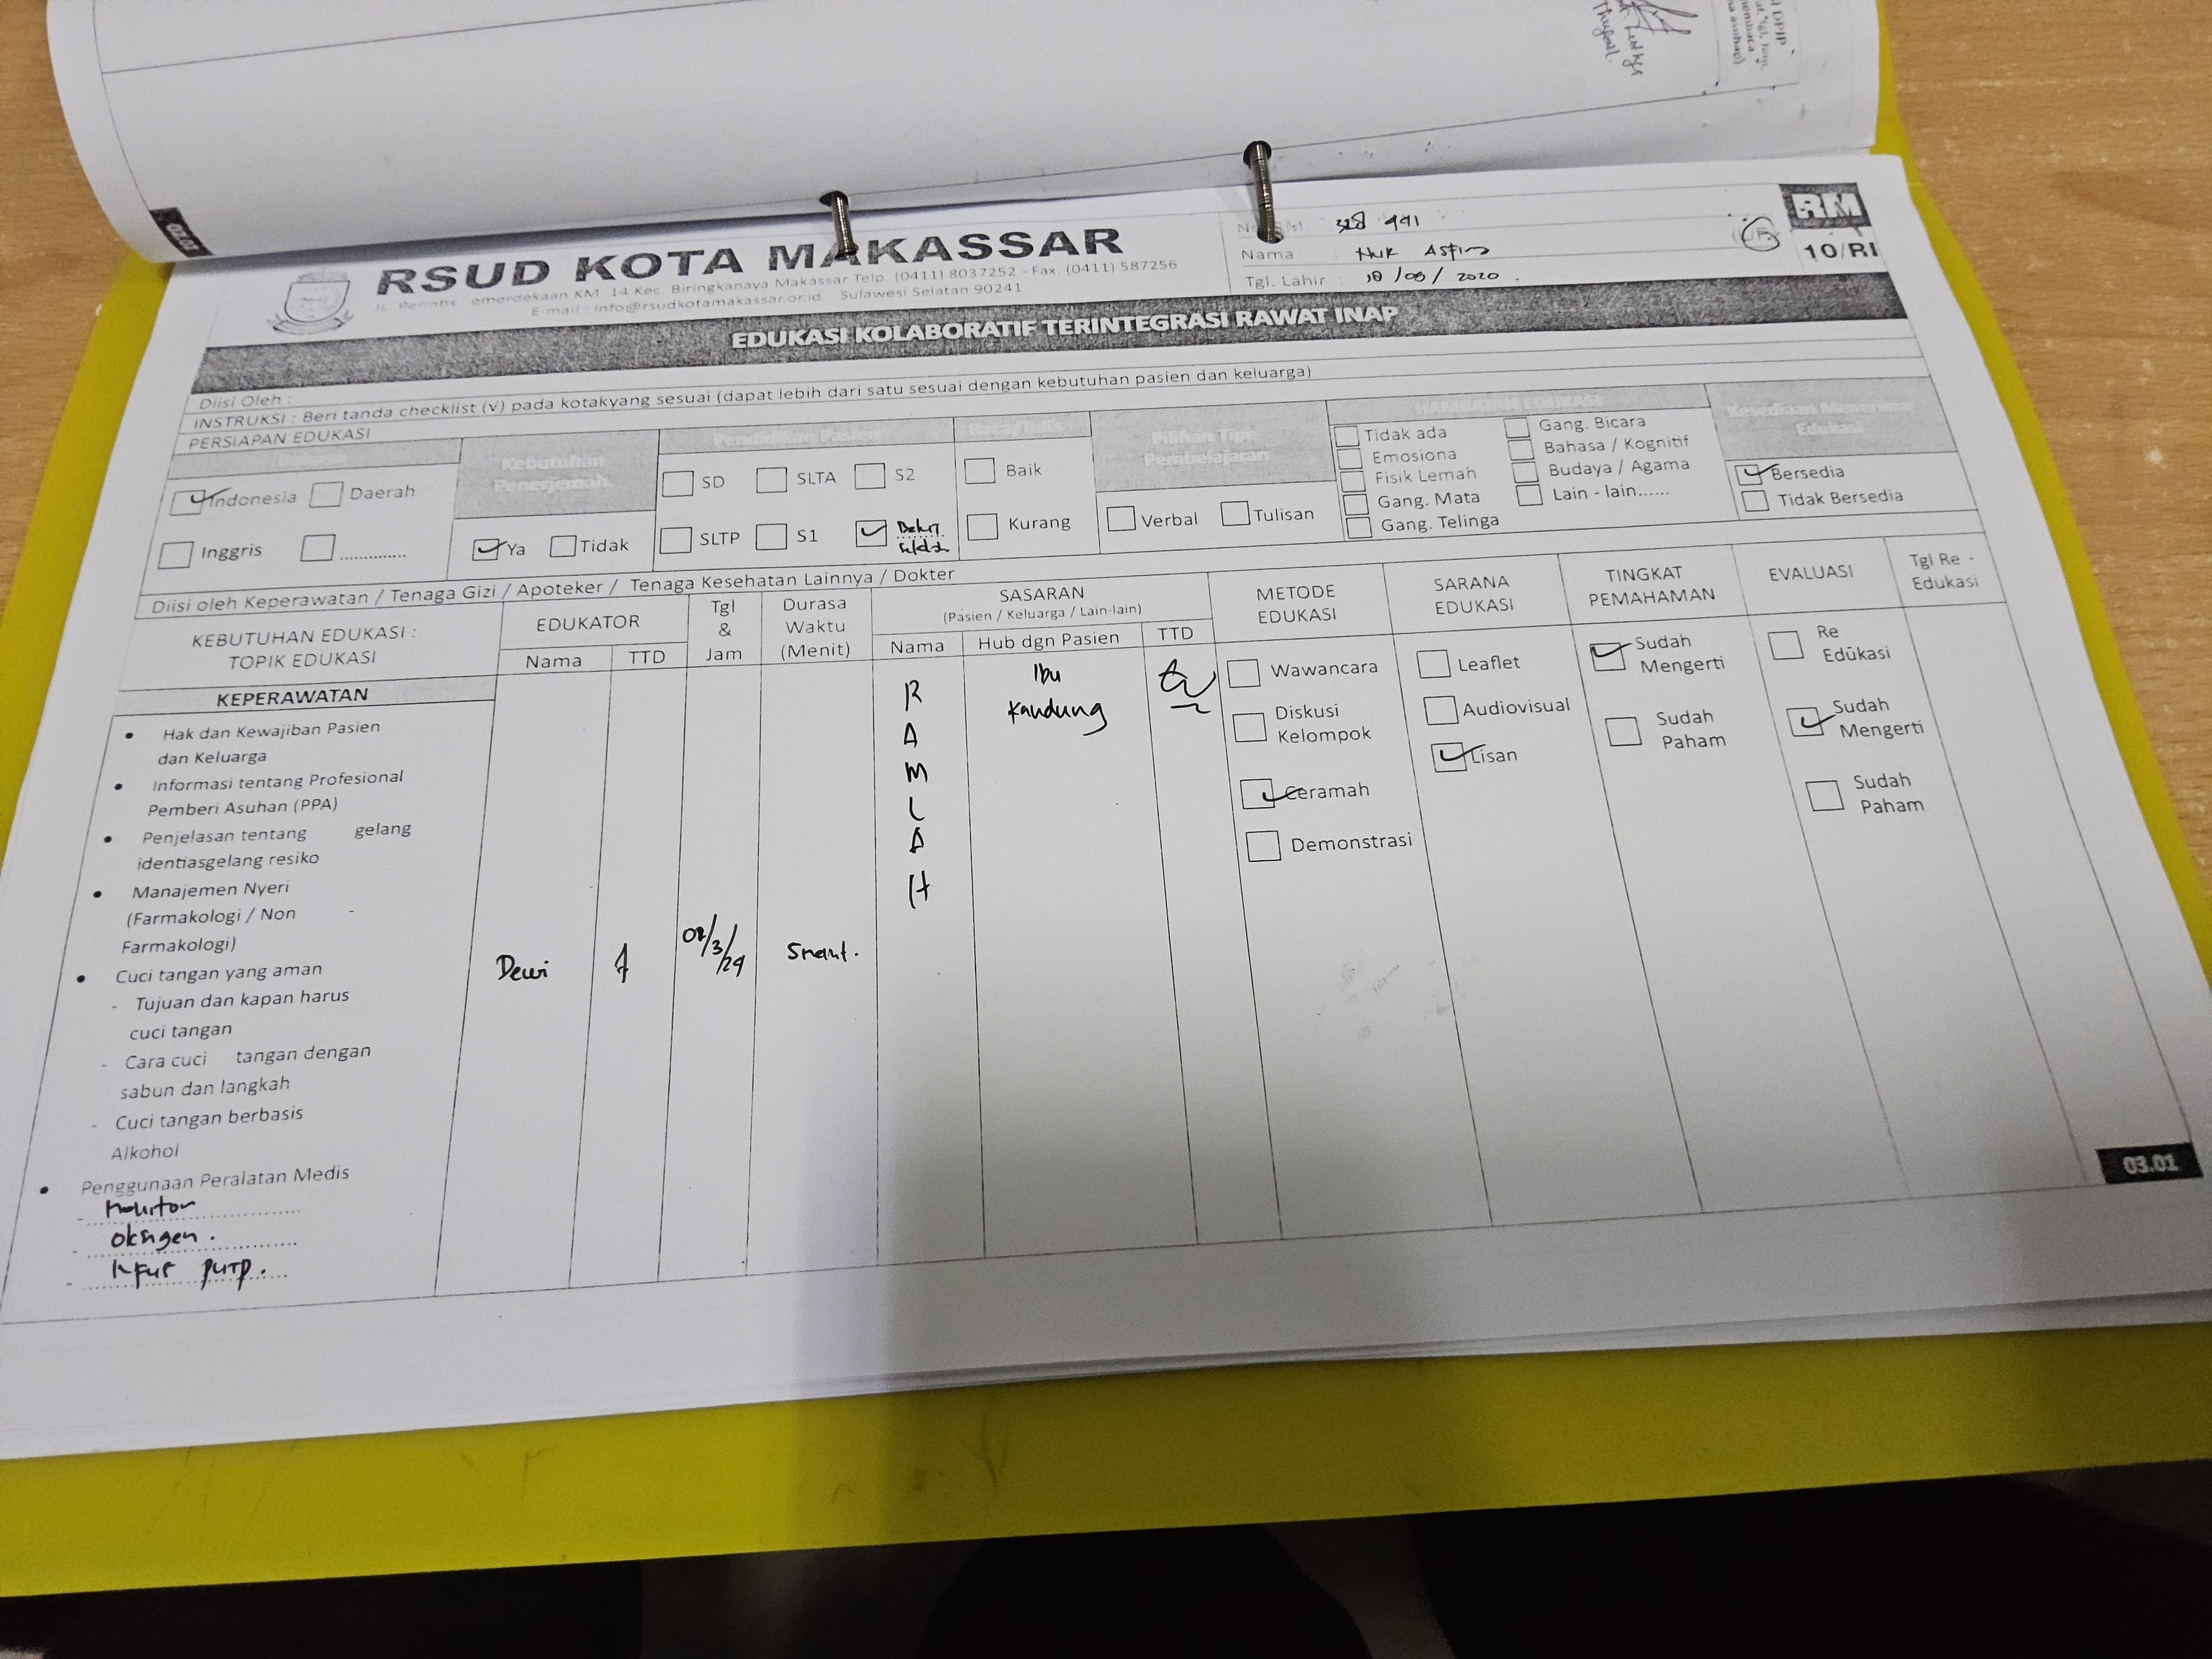 RSUD KOTA MAKASSAR
JL. Perintis emerdekaan KM. 14 Kec. Biringkanaya Makassar Telp. (0411) 8037252 - Fax. (0411) 587256
E-mail : info@rsudkotamakassar.or.id Sulawesi Selatan 90241
991
Nama
Tgl. Lahir : 18 / 08 / 2020
RM
10/RI
EDUKASI KOLABORATIF TERINTEGRASI RAWAT INAP
Diisi Oleh :
INSTRUKSI : Beri tanda checklist (v) pada kotakyang sesuai (dapat lebih dari satu sesuai dengan kebutuhan pasien dan keluarga)
PERSIAPAN EDUKASI
Indonesia
Daerah
Inggris
..............
Kebutuhan
Penerjemah
Ya
Tidak
Pendidikan Pasien
SD
SLTA
S2
SLTP
S1
Baca/Tulis
Baik
Kurang
Pilihan Tipe
Pembelajaran
Verbal
Tulisan
HAMBATAN EDUKASI
Tidak ada
Emosiona
Fisik Lemah
Gang. Mata
Gang. Telinga
Gang. Bicara
Bahasa / Kognitif
Budaya / Agama
Lain - lain......
Kesediaan Menerima
Edukasi
Bersedia
Tidak Bersedia
Diisi oleh Keperawatan / Tenaga Gizi / Apoteker / Tenaga Kesehatan Lainnya / Dokter
KEBUTUHAN EDUKASI :
TOPIK EDUKASI
EDUKATOR
Nama
TTD
Tgl
&
Jam
Durasa
Waktu
(Menit)
SASARAN
(Pasien / Keluarga / Lain-lain)
Nama
Hub dgn Pasien
TTD
METODE
EDUKASI
SARANA
EDUKASI
TINGKAT
PEMAHAMAN
EVALUASI
Tgl Re -
Edukasi
KEPERAWATAN
• Hak dan Kewajiban Pasien
dan Keluarga
• Informasi tentang Profesional
Pemberi Asuhan (PPA)
• Penjelasan tentang gelang
identiasgelang resiko
• Manajemen Nyeri
(Farmakologi / Non -
Farmakologi)
• Cuci tangan yang aman
- Tujuan dan kapan harus
cuci tangan
- Cara cuci tangan dengan
sabun dan langkah
- Cuci tangan berbasis
Alkohol
• Penggunaan Peralatan Medis
- Monitor
- oksigen .
Dewi
5 menit.
R
A
M
L
A
H
Ibu
Kandung
Wawancara
Diskusi
Kelompok
Ceramah
Demonstrasi
Leaflet
Audiovisual
Lisan
Sudah
Mengerti
Sudah
Paham
Re
Edukasi
Sudah
Mengerti
Sudah
Paham
03.01